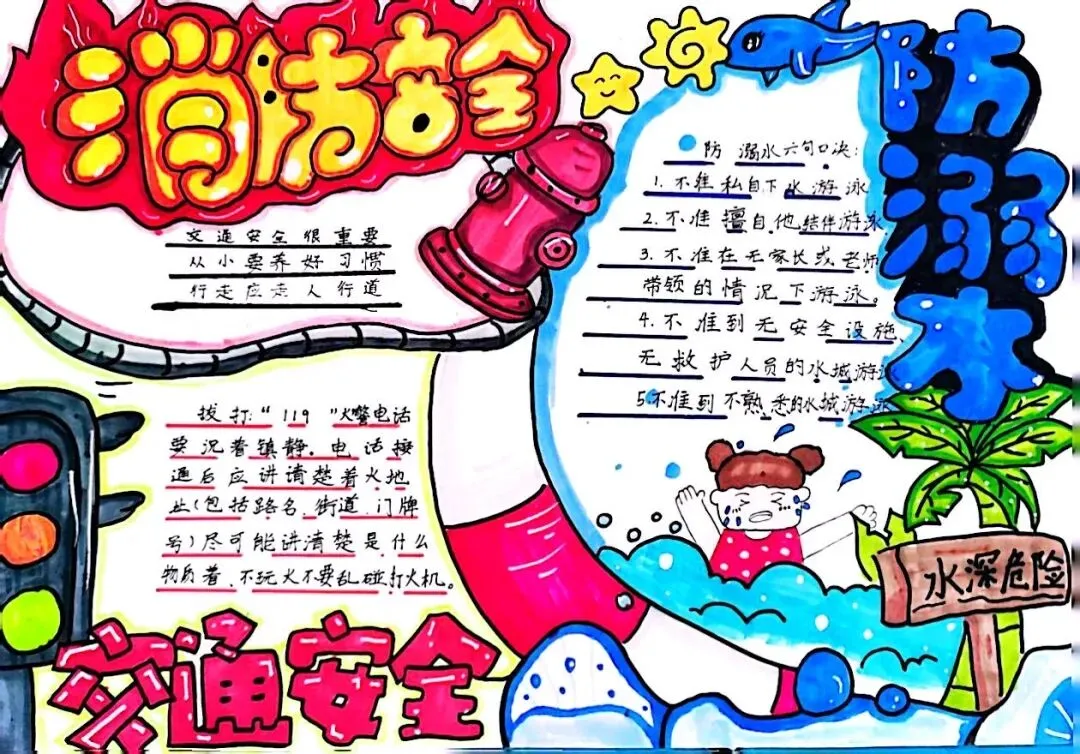 消防安全
交通安全很重要
从小要养好习惯
行走应走人行道
拨打:“119”火警电话
要沉着镇静。电话接
通后应讲请楚着火地
址(包括路名、街道、门牌
号)尽可能讲清楚是什么
物质着、不玩火不要乱碰打火机。
交通安全
防溺水
防溺水六句口决:
1.不准私自下水游泳
2.不准擅自他结伴游泳、
3.不准在无家长或老师
带领的情况下游泳。
4.不准到无安全设施、
无救护人员的水城游泳
5.不准到不熟悉的水城游泳
水深危险